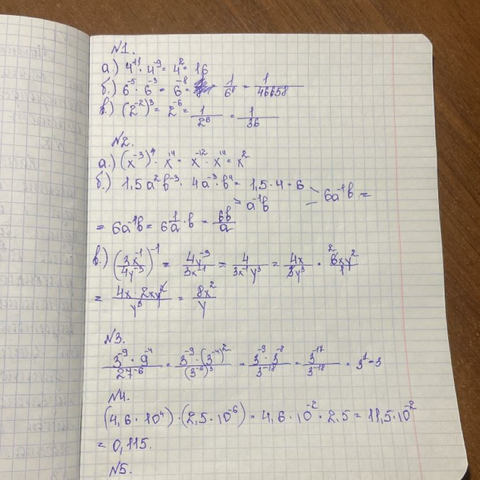 №1.
а.) 4¹¹ · 4⁻⁹ = 4² = 16
б.) 6⁻⁵ · 6⁻³ = 6⁻⁸ = 1/6⁸ = 1/46658
в.) (2⁻²)³ = 2⁻⁶ = 1/2⁶ = 1/36
№2.
а.) (x⁻³)⁴ · x¹⁴ = x⁻¹² · x¹⁴ = x²
б.) 1,5a²b⁻³ · 4a⁻³ · b⁴ = 1,5 · 4 = 6
a⁻¹b
6a⁻¹b =
= 6a⁻¹b = 6 1/a · b = 6b/a
в.) (3x⁻¹/4y⁻³)⁻¹ = 4y⁻³/3x⁻¹ = 4/3x⁻¹y³ = 4x/3y³ · 6xy²/1
2
= 4x · 2xy²/y³ = 8x²/y
№3.
3⁻⁹ · 9⁻⁴/27⁻⁶ = 3⁻⁹ · (3⁻⁴)²/(3⁻⁶)³ = 3⁻⁹ · 3⁻⁸/3⁻¹⁸ = 3⁻¹⁷/3⁻¹⁸ = 3¹ = 3
№4.
(4,6 · 10⁴) · (2,5 · 10⁻⁶) = 4,6 · 10⁻² · 2,5 = 11,5 · 10⁻²
= 0,115.
№5.